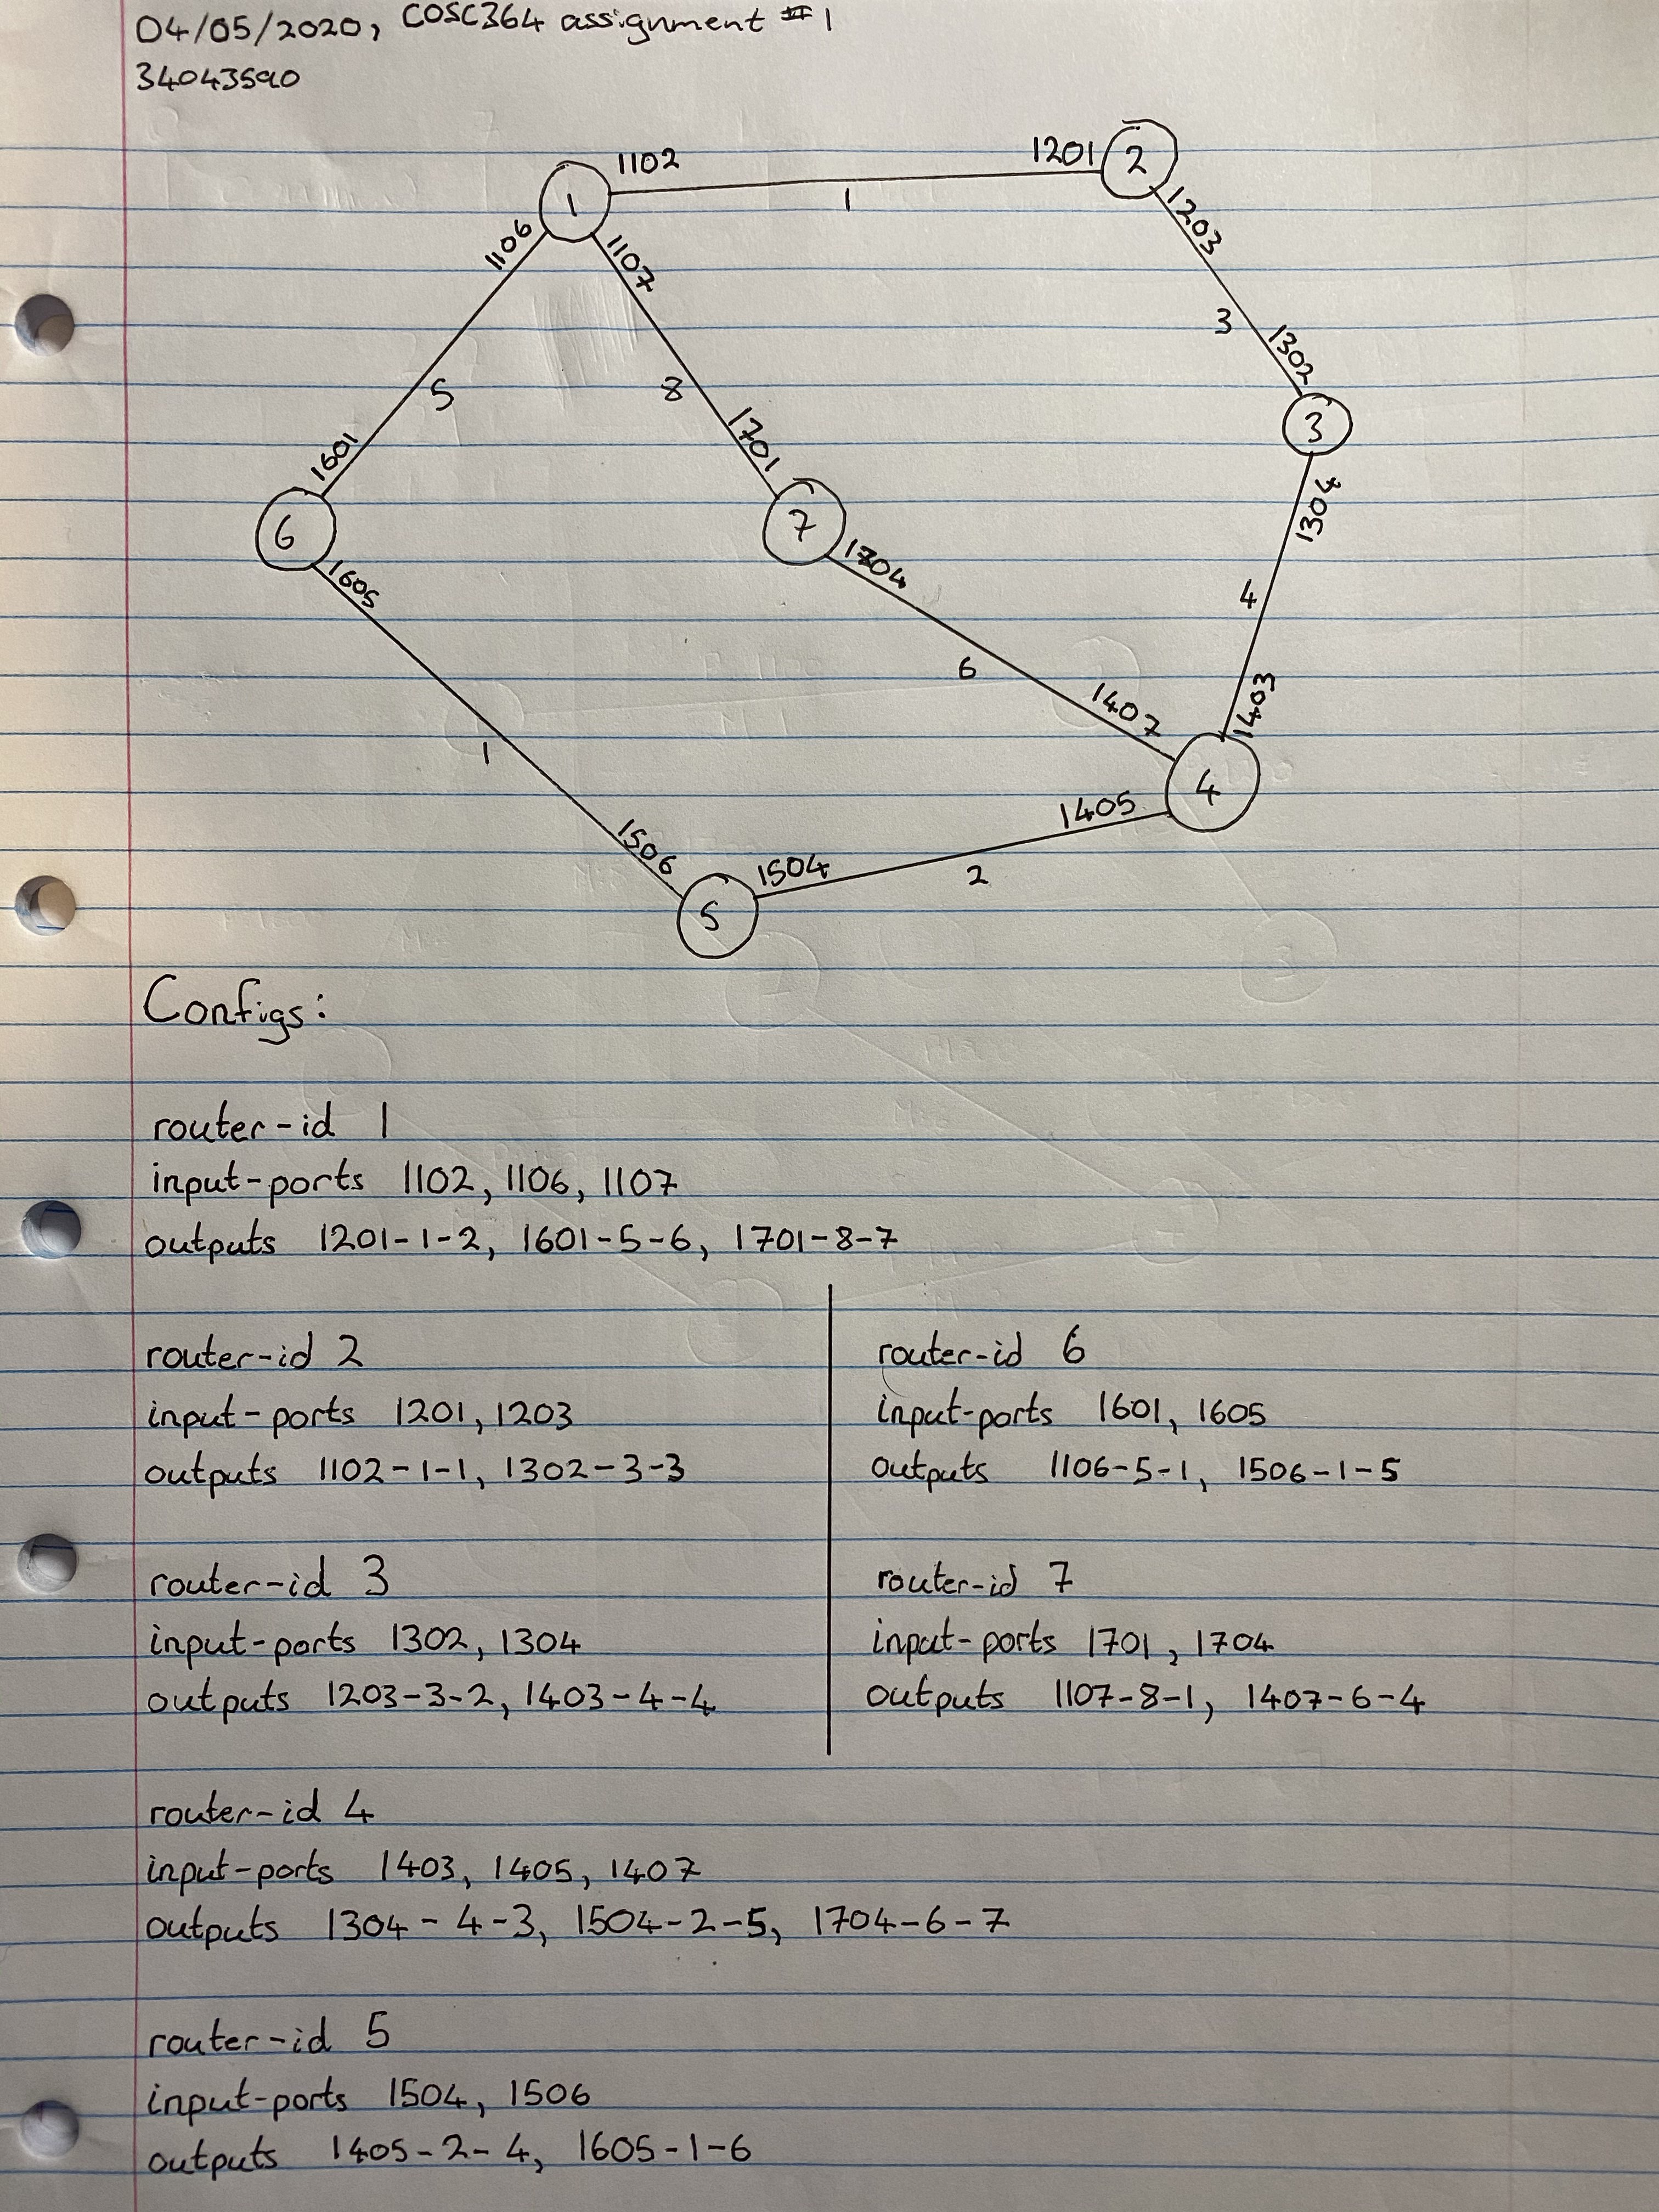 04/05/2020, COSC364 assignment #1
34043590
1102
1201
2
1
1
1203
1106
1107
3
1302
5
8
3
1601
1701
1304
6
7
1704
1605
4
6
1407
1403
1
4
1405
1506
1504
2
5
Configs:
router-id 1
input-ports 1102, 1106, 1107
outputs 1201-1-2, 1601-5-6, 1701-8-7
router-id 2
input-ports 1201, 1203
outputs 1102-1-1, 1302-3-3
router-id 3
input-ports 1302, 1304
outputs 1203-3-2, 1403-4-4
router-id 6
input-ports 1601, 1605
outputs 1106-5-1, 1506-1-5
router-id 7
input-ports 1701, 1704
outputs 1107-8-1, 1407-6-4
router-id 4
input-ports 1403, 1405, 1407
outputs 1304-4-3, 1504-2-5, 1704-6-7
router-id 5
input-ports 1504, 1506
outputs 1405-2-4, 1605-1-6